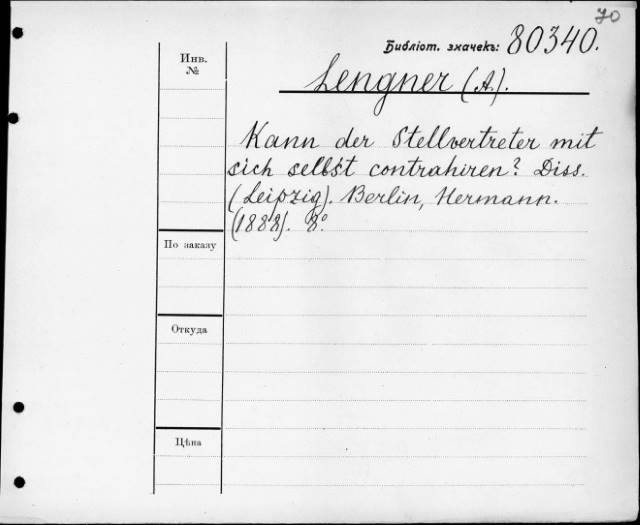 70
Библіот. значекъ: 80340.
Инв.
№
Lengner (A).
Kann der Stellvertreter mit
sich selbst contrahiren? Diss.
(Leipzig). Berlin, Hermann.
(1888). 8°.
По заказу
Откуда
Цѣна